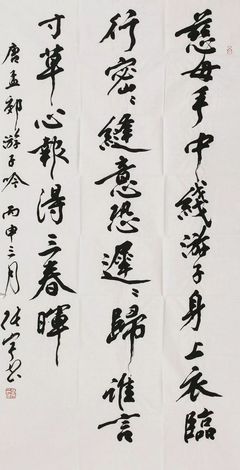 慈母手中线游子身上衣臨
行密密缝意恐遲遲歸谁言
寸草心報得三春暉
唐孟郊游子吟丙申三月